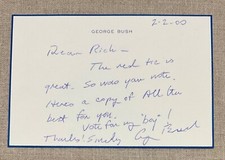 GEORGE BUSH
2-2-00
Dear Rich -
The red tie is
great. So was your note.
Here's a copy of All the
Best for you.
Vote for my "boy"!
Thanks! Sincerely G Bush